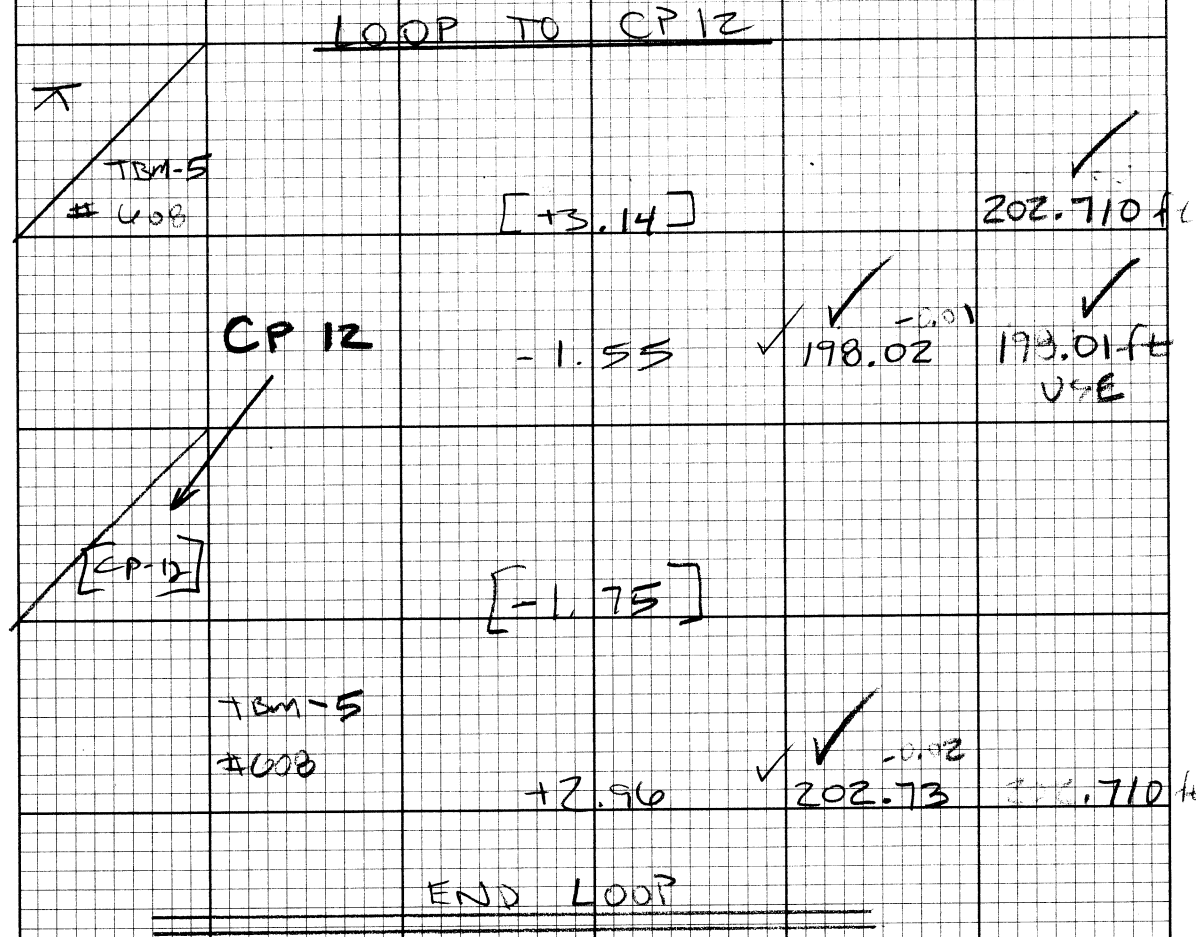 LOOP TO CP 12
TBM-5
# 608
[+3.14]
202.710 ft
CP 12
-1.55
198.02
-0.01
198.01 ft
USE
[CP-12]
[-1.75]
TBM-5
#608
+2.96
202.73
-0.02
.710 ft
END LOOP